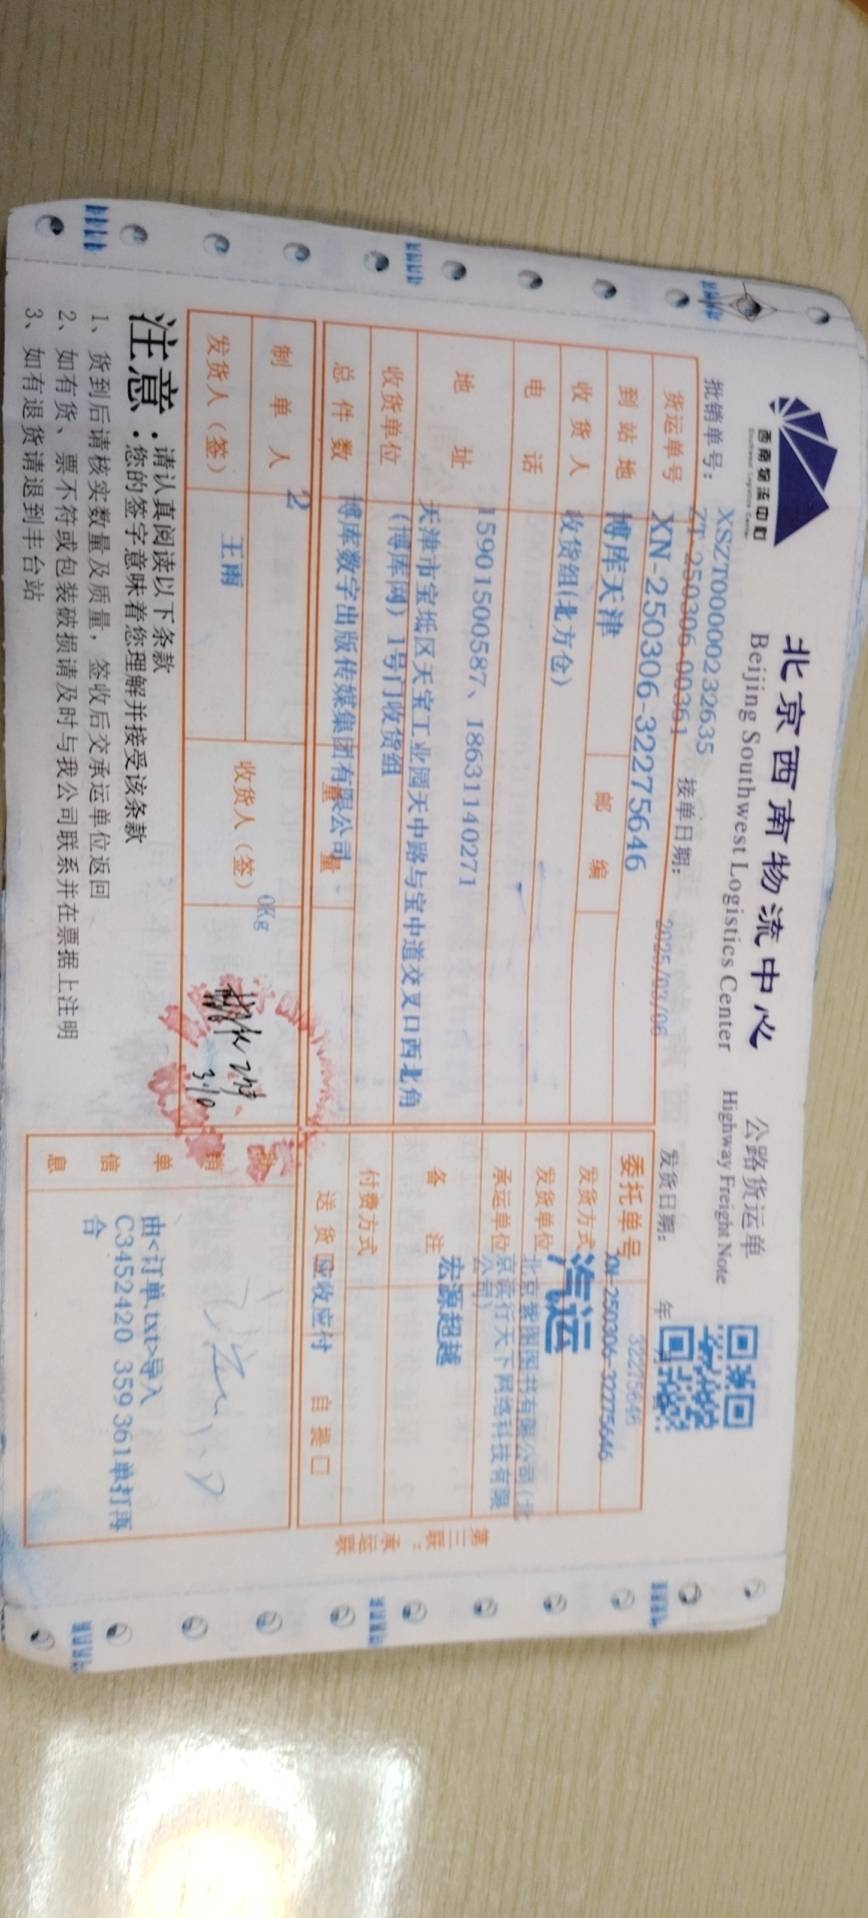 西南物流中心
Southwest Logistics Center
北京西南物流中心 公路货运单
Beijing Southwest Logistics Center Highway Freight Note
批销单号： XSZT00000232635
ZT-250306-00361
接单日期： 2025/03/06
发货日期： 年 月
货运单号 XN-250306-32275646
委托单号 XN-250306-32275646
32275646
到站地 博库天津 邮编
发货方式 汽运
收货人 收货组(北方仓)
发货单位 北京紫图图书有限公司(北
京读行天下网络科技有限
公司)
电话 15901500587、18631140271
承运单位
地址 天津市宝坻区天宝工业园天中路与宝中道交叉口西北角
(博库网) 1号门收货组
备注 宏源超越
收货单位 博库数字出版传媒集团有限公司
付费方式
总件数 2
量 量
0Kg
送货口 应收应付 自提口
制单人 王雨
发货人（签）
收货人（签）
3.10
销单信息
由<订单.txt>导入
C3452420 359 361单打再
合
第三联：承运联
注意：
请认真阅读以下条款
您的签字意味着您理解并接受该条款
1、货到后请核实数量及质量，签收后交承运单位返回
2、如有货、票不符或包装破损请及时与我公司联系并在票据上注明
3、如有退货请退到丰台站